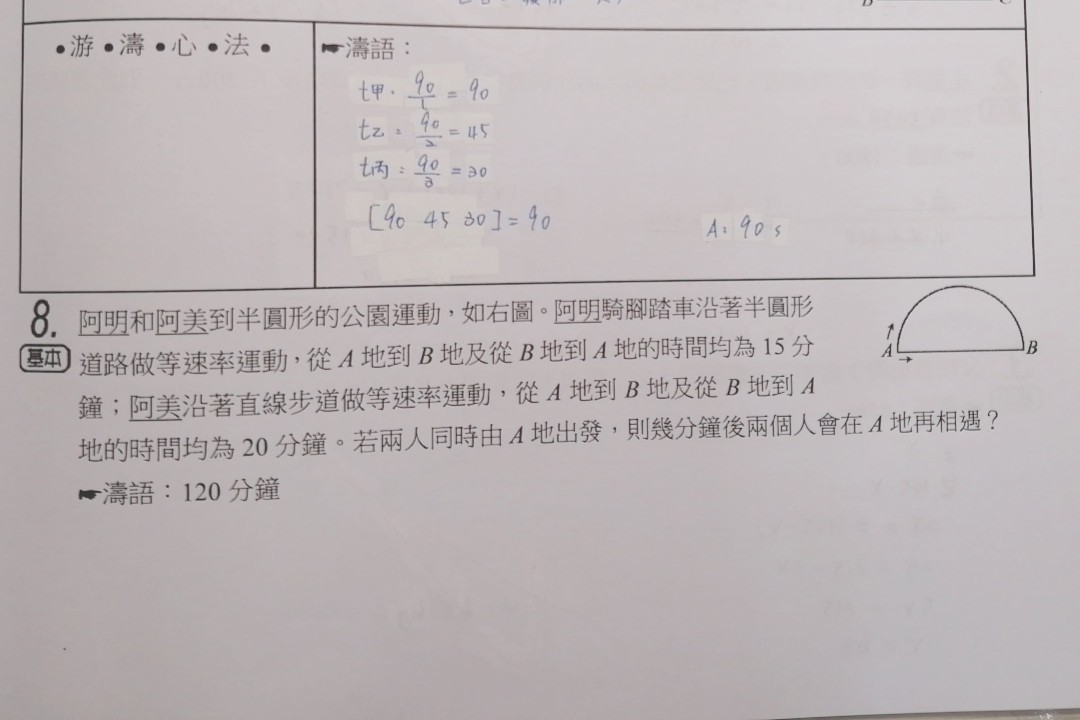 B C
•游•濤•心•法•
☛濤語：
t甲 = 90/1 = 90
t乙 = 90/2 = 45
t丙 = 90/3 = 30
[90 45 30] = 90
A: 90 s
8. 阿明和阿美到半圓形的公園運動，如右圖。阿明騎腳踏車沿著半圓形
基本 道路做等速率運動，從 A 地到 B 地及從 B 地到 A 地的時間均為 15 分
鐘；阿美沿著直線步道做等速率運動，從 A 地到 B 地及從 B 地到 A
地的時間均為 20 分鐘。若兩人同時由 A 地出發，則幾分鐘後兩個人會在 A 地再相遇？
A B
☛濤語：120 分鐘